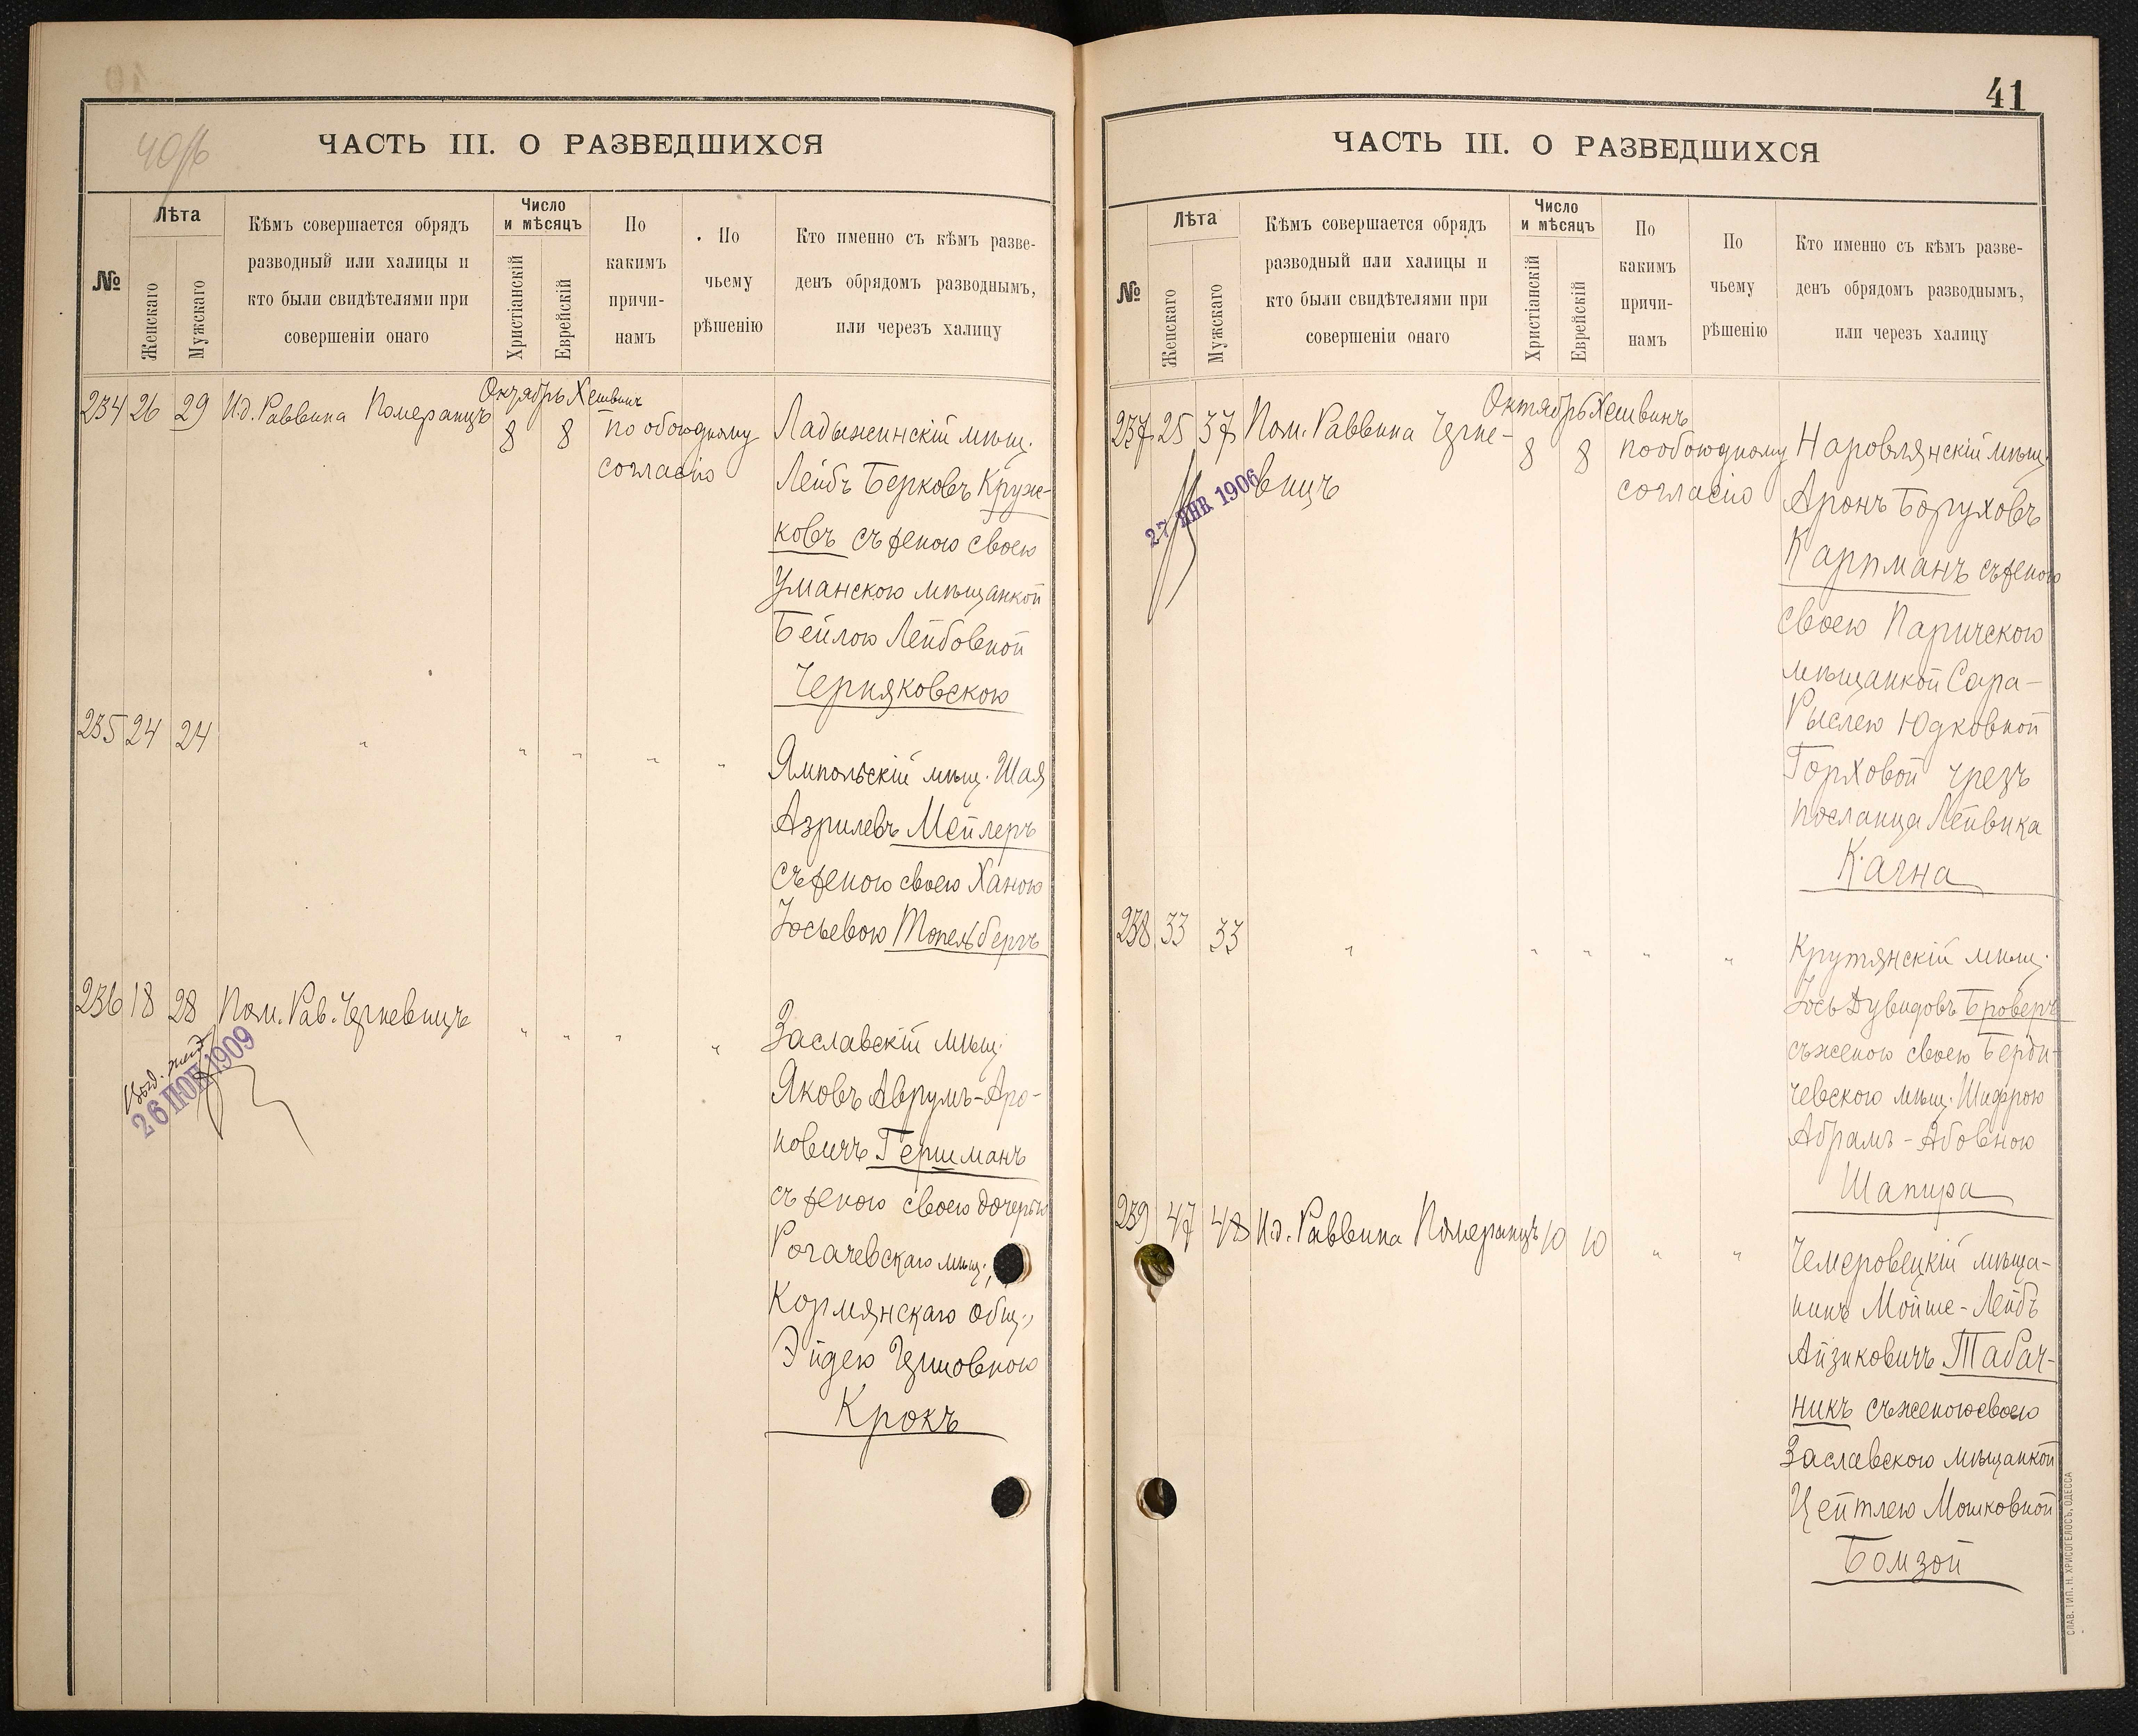 40/б
ЧАСТЬ III. О РАЗВЕДШИХСЯ
№
Лѣта
Женскаго
Мужскаго
Кѣмъ совершается обрядъ
разводный или халицы и
кто были свидѣтелями при
совершеніи онаго
Число
и мѣсяцъ
Христіанскій
Еврейскій
По
какимъ
причи-
намъ
По
чьему
рѣшенію
Кто именно съ кѣмъ разве-
денъ обрядомъ разводнымъ,
или черезъ халицу
Октябрь Хешвинъ
234 26 29 И.д. Раввина Померанцъ 8 8 по обоюдному
согласію
Ладыжинскій мѣщ.
Лейбъ Берковъ Круж-
ковъ съ женою своею
Уманскою мѣщанкой
Бейлою Лейбовной
Черняковскою
235 24 24 " " " " "
Ямпольскій мѣщ. Шая
Азрилевъ Мейлеръ
съ женою своею Ханою
Іосьевою Топельбергъ
236 18 28 Пом. Рав. Черневицъ " " " "
26 ІЮН 1909
Заславскій мѣщ.
Яковъ Аврумъ-Аро-
новичъ Гершманъ
съ женою своею дочерью
Рогачевскаго мѣщ.,
Кормянскаго общ.,
Эйдею Гершовною
Крокъ
41
ЧАСТЬ III. О РАЗВЕДШИХСЯ
№
Лѣта
Женскаго
Мужскаго
Кѣмъ совершается обрядъ
разводный или халицы и
кто были свидѣтелями при
совершеніи онаго
Число
и мѣсяцъ
Христіанскій
Еврейскій
По
какимъ
причи-
намъ
По
чьему
рѣшенію
Кто именно съ кѣмъ разве-
денъ обрядомъ разводнымъ,
или черезъ халицу
Октябрь Хешвинъ
237 25 37 Пом. Раввина Черне-
вицъ
8 8 по обоюдному
согласію
27 ЯНВ 1906
Наровлянскій мѣщ.
Аронъ Боруховъ
Картманъ съ женою
своею Паричскою
мѣщанкой Сара-
Рыслею Юдковной
Горховой чрезъ
посланца Лейвика
Кагна
238 33 33 " " " " "
Крутянскій мѣщ.
Іось Дувидовъ Броверъ
съ женою своею Берди-
чевскою мѣщ. Шифрою
Абрамъ-Абовною
Шапира
239 47 48 И.д. Раввина Померанцъ 10 10 " "
Чемеровецкій мѣща-
нинъ Мойше-Лейбъ
Айзиковичъ Табач-
никъ съ женою своею
Заславскою мѣщанкой
Цейтлею Мошковной
Бомзой
СЛАВ. ТИП. Н. ХРИСОГЕЛОСЪ, ОДЕССА